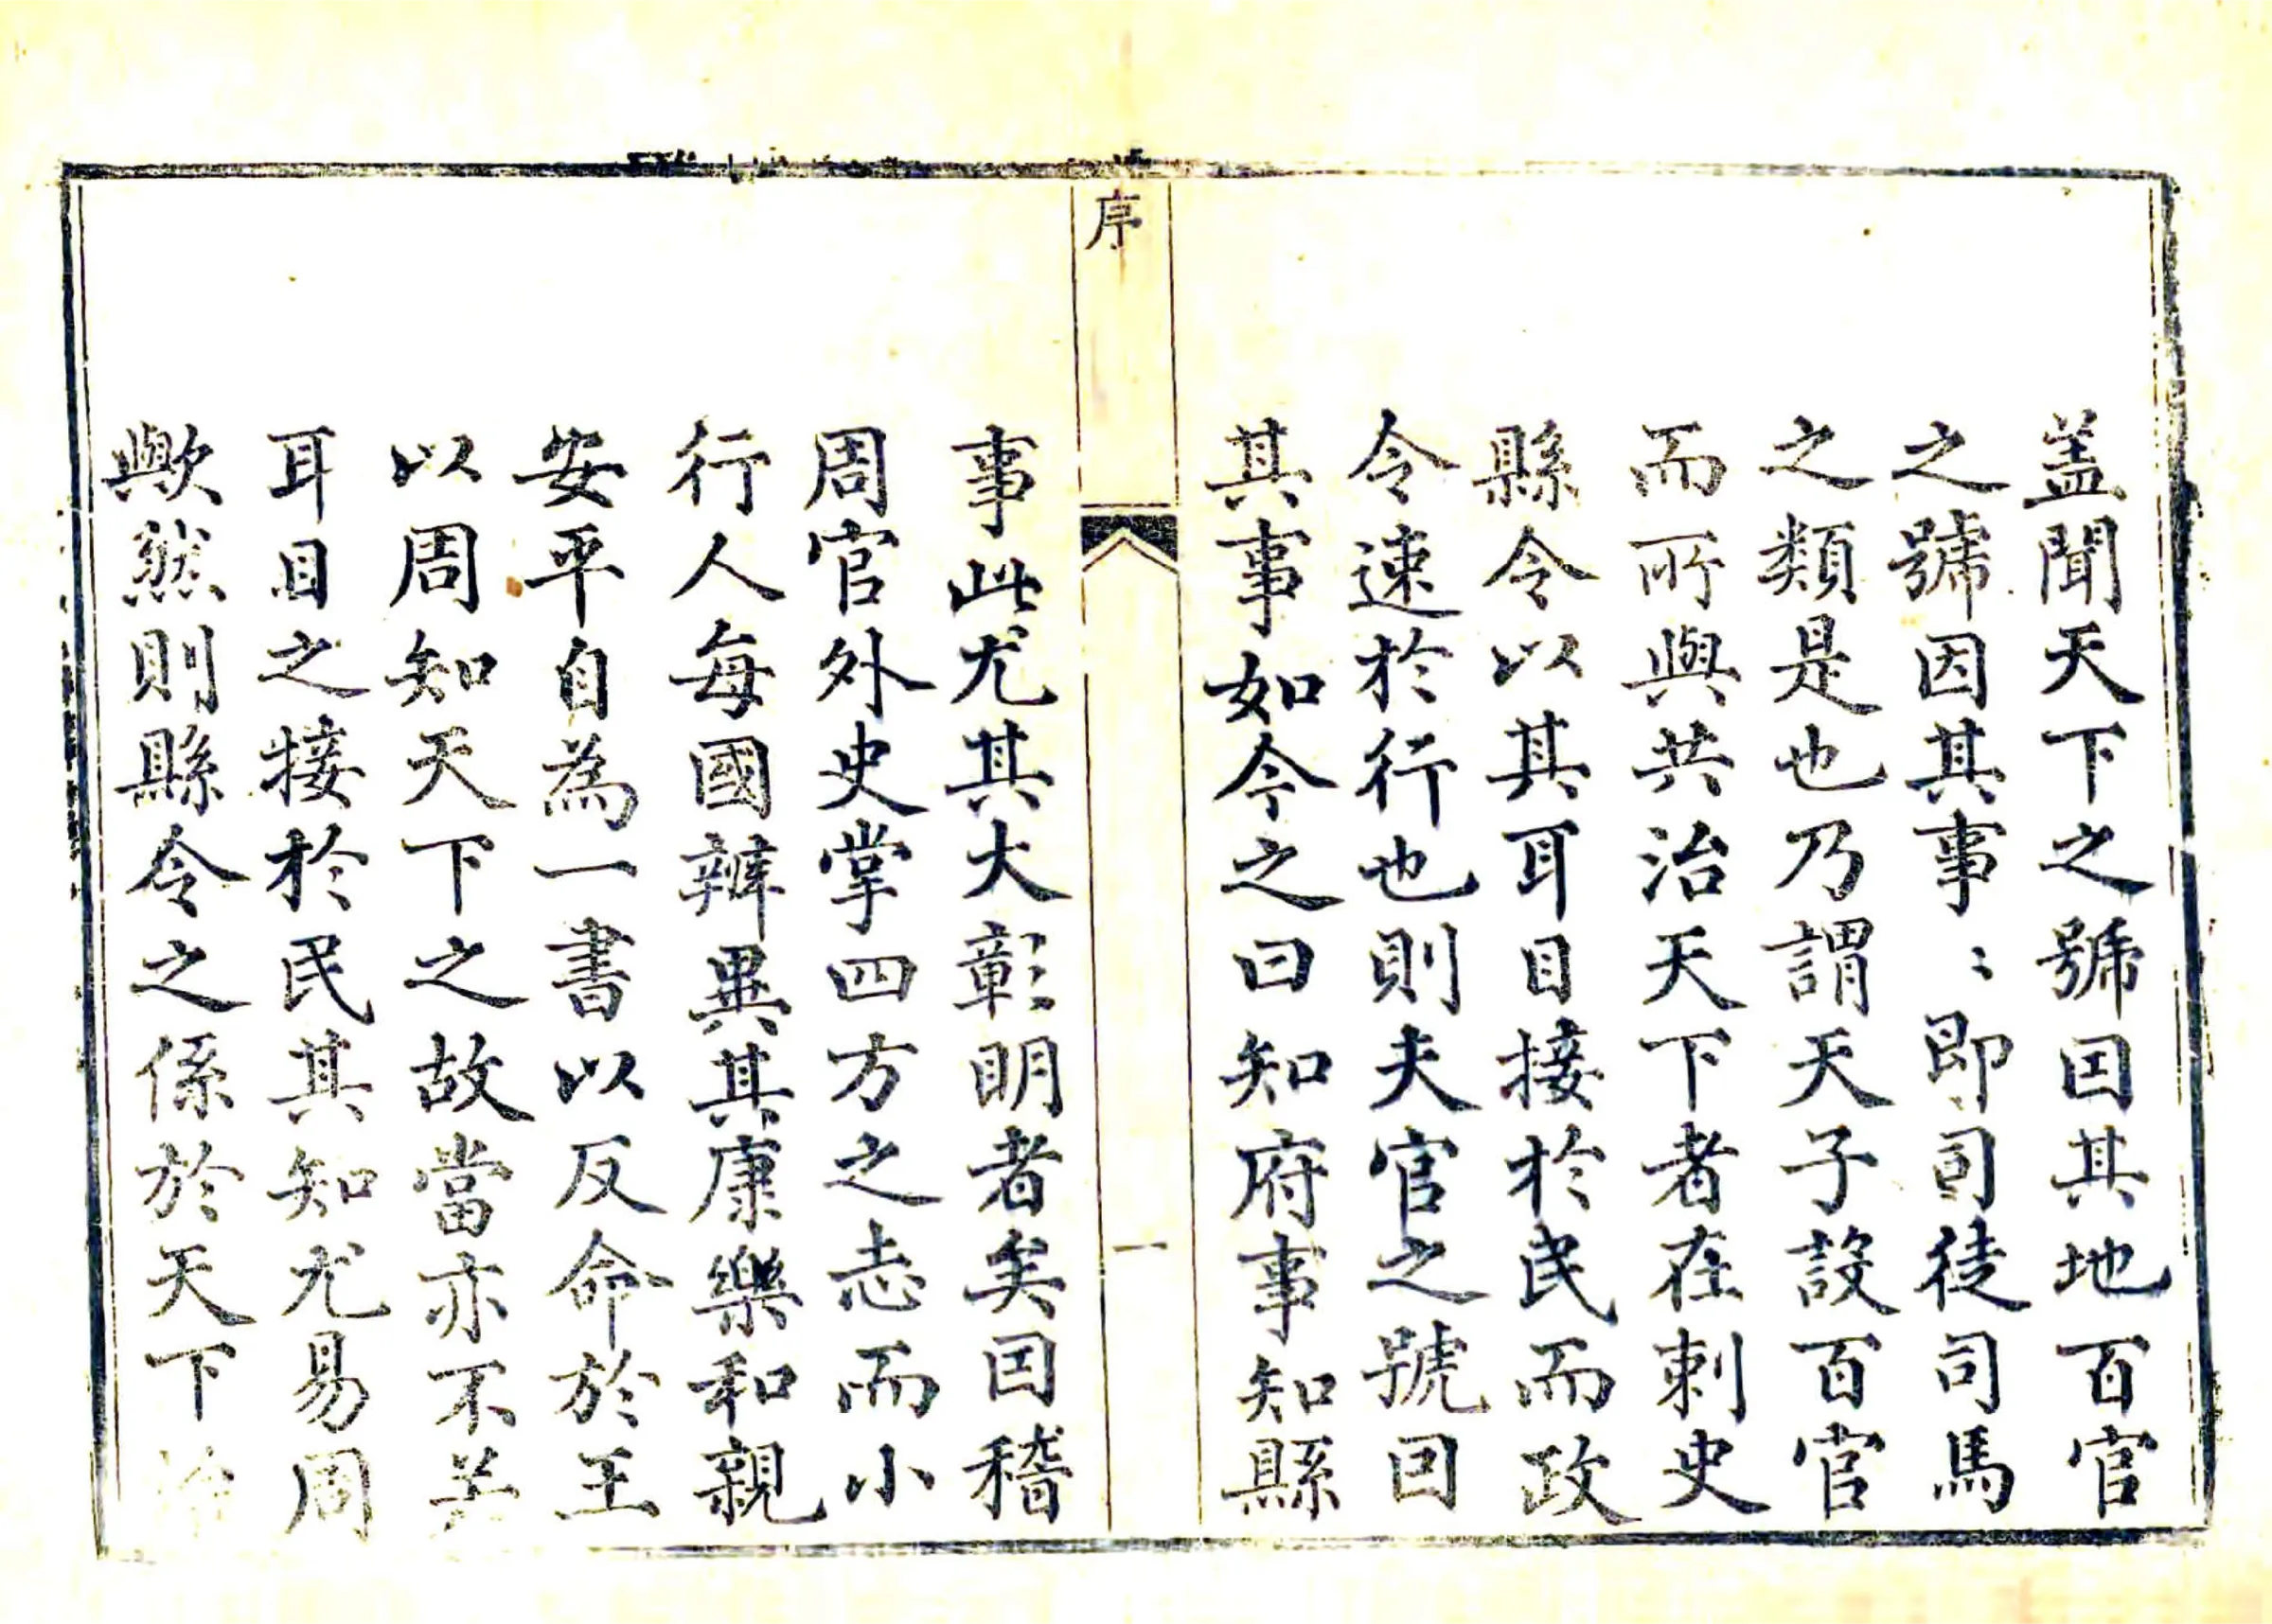 盖聞天下之號囙其地百官
之號因其事〻即司徒司馬
之類是也乃謂天子設百官
而所與共治天下者在刺史
縣令以其耳目接於民而政
令速於行也則夫官之號囙
其事如今之曰知府事知縣
序
一
事此尤其大彰明者矣囙稽
周官外史掌四方之志而小
行人每國辨異其康樂和親
安平自為一書以反命於王
以周知天下之故當亦不美
耳目之接於民其知尤易周
歟然則縣令之係於天下